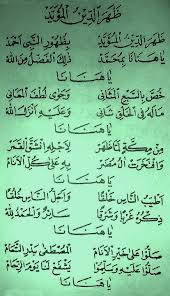 ظَهَرَ الدِّينُ الْمُؤَيَّدُ
ظَهَرَ الدِّينُ الْمُؤَيَّدُ بِظُهُورِ النَّبِي أَحْمَدْ
يَا هَنَانَا بِمُحَمَّدْ ذٰلِكَ الْفَضْلُ مِنَ اللهْ
يَا هَنَانَا
خُصَّ بِالسَّبْعِ الْمَثَانِي وَحَوَى لُطْفَ الْمَعَانِي
مَالَهُ فِي الْخَلْقِ ثَانِي وَعَلَيْهِ أَنْزَلَ اللهْ
يَا هَنَانَا
مِنْ مَكَّةٍ لَمَّا ظَهَرْ لِأَجْلِهِ انْشَقَّ الْقَمَرْ
وَافْتَخَرَتْ آلُ مُضَرْ بِهِ عَلَى كُلِّ الْأَنَامْ
يَا هَنَانَا
أَطْيَبُ النَّاسِ خَلْقًا وَأَجَلُّ النَّاسِ خُلُقًا
ذِكْرُهُ غَرْبًا وَشَرْقًا سَائِرٌ وَالْحَمْدُ لِلّٰهْ
يَا هَنَانَا
صَلُّوا عَلَى خَيْرِ الْأَنَامْ الْمُصْطَفَى بَدْرِ التَّمَامْ
صَلُّوا عَلَيْهِ وَسَلِّمُوا يَشْفَعْ لَنَا يَوْمَ الزِّحَامْ
يَا هَنَانَا